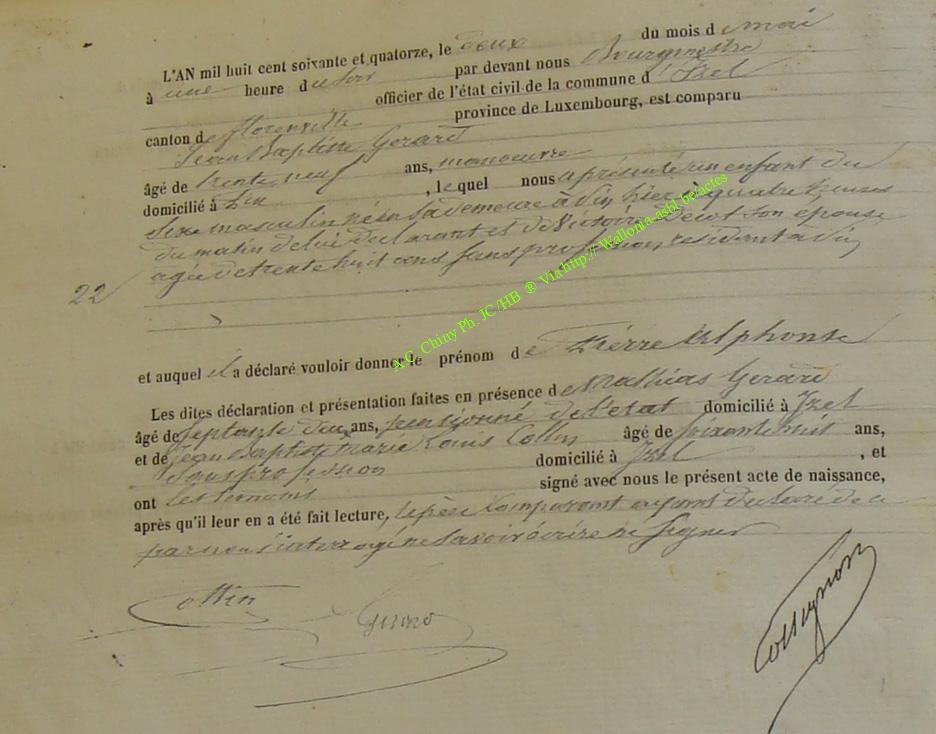 L'AN mil huit cent soixante et quatorze, le deux du mois d e mai
à une heure d u soir par devant nous Bourgmestre
officier de l'état civil de la commune d'Izel
canton de florenville province de Luxembourg, est comparu
Jean Baptiste Gerard
âgé de trente neuf ans, manoeuvre
domicilié à , lequel nous a présenté un enfant du
Sexe masculin né en sa demeure à hier à quatre heures
du matin de lui declarant et de Victoire son épouse
agée de trente huit ans sans profession, résidant à
22
et auquel il a déclaré vouloir donner le prénom de Pierre Alphonse
Les dites déclaration et présentation faites en présence de Mathias Gerard
âgé de septante deux ans, pensionné de l'état domicilié à Izel
et de Jean Baptiste Marie Louis Collin âgé de soixante huit ans,
Sans profession domicilié à Izel , et
ont les temoins signé avec nous le présent acte de naissance,
après qu'il leur en a été fait lecture, le père Comparant ayant declaré de ce
par nous interrogé ne savoir écrire ni Signer
Collin
Gerard
A.C. Chiny Ph. JC/HB ® Via http://Wallonia-asbl.be/actes